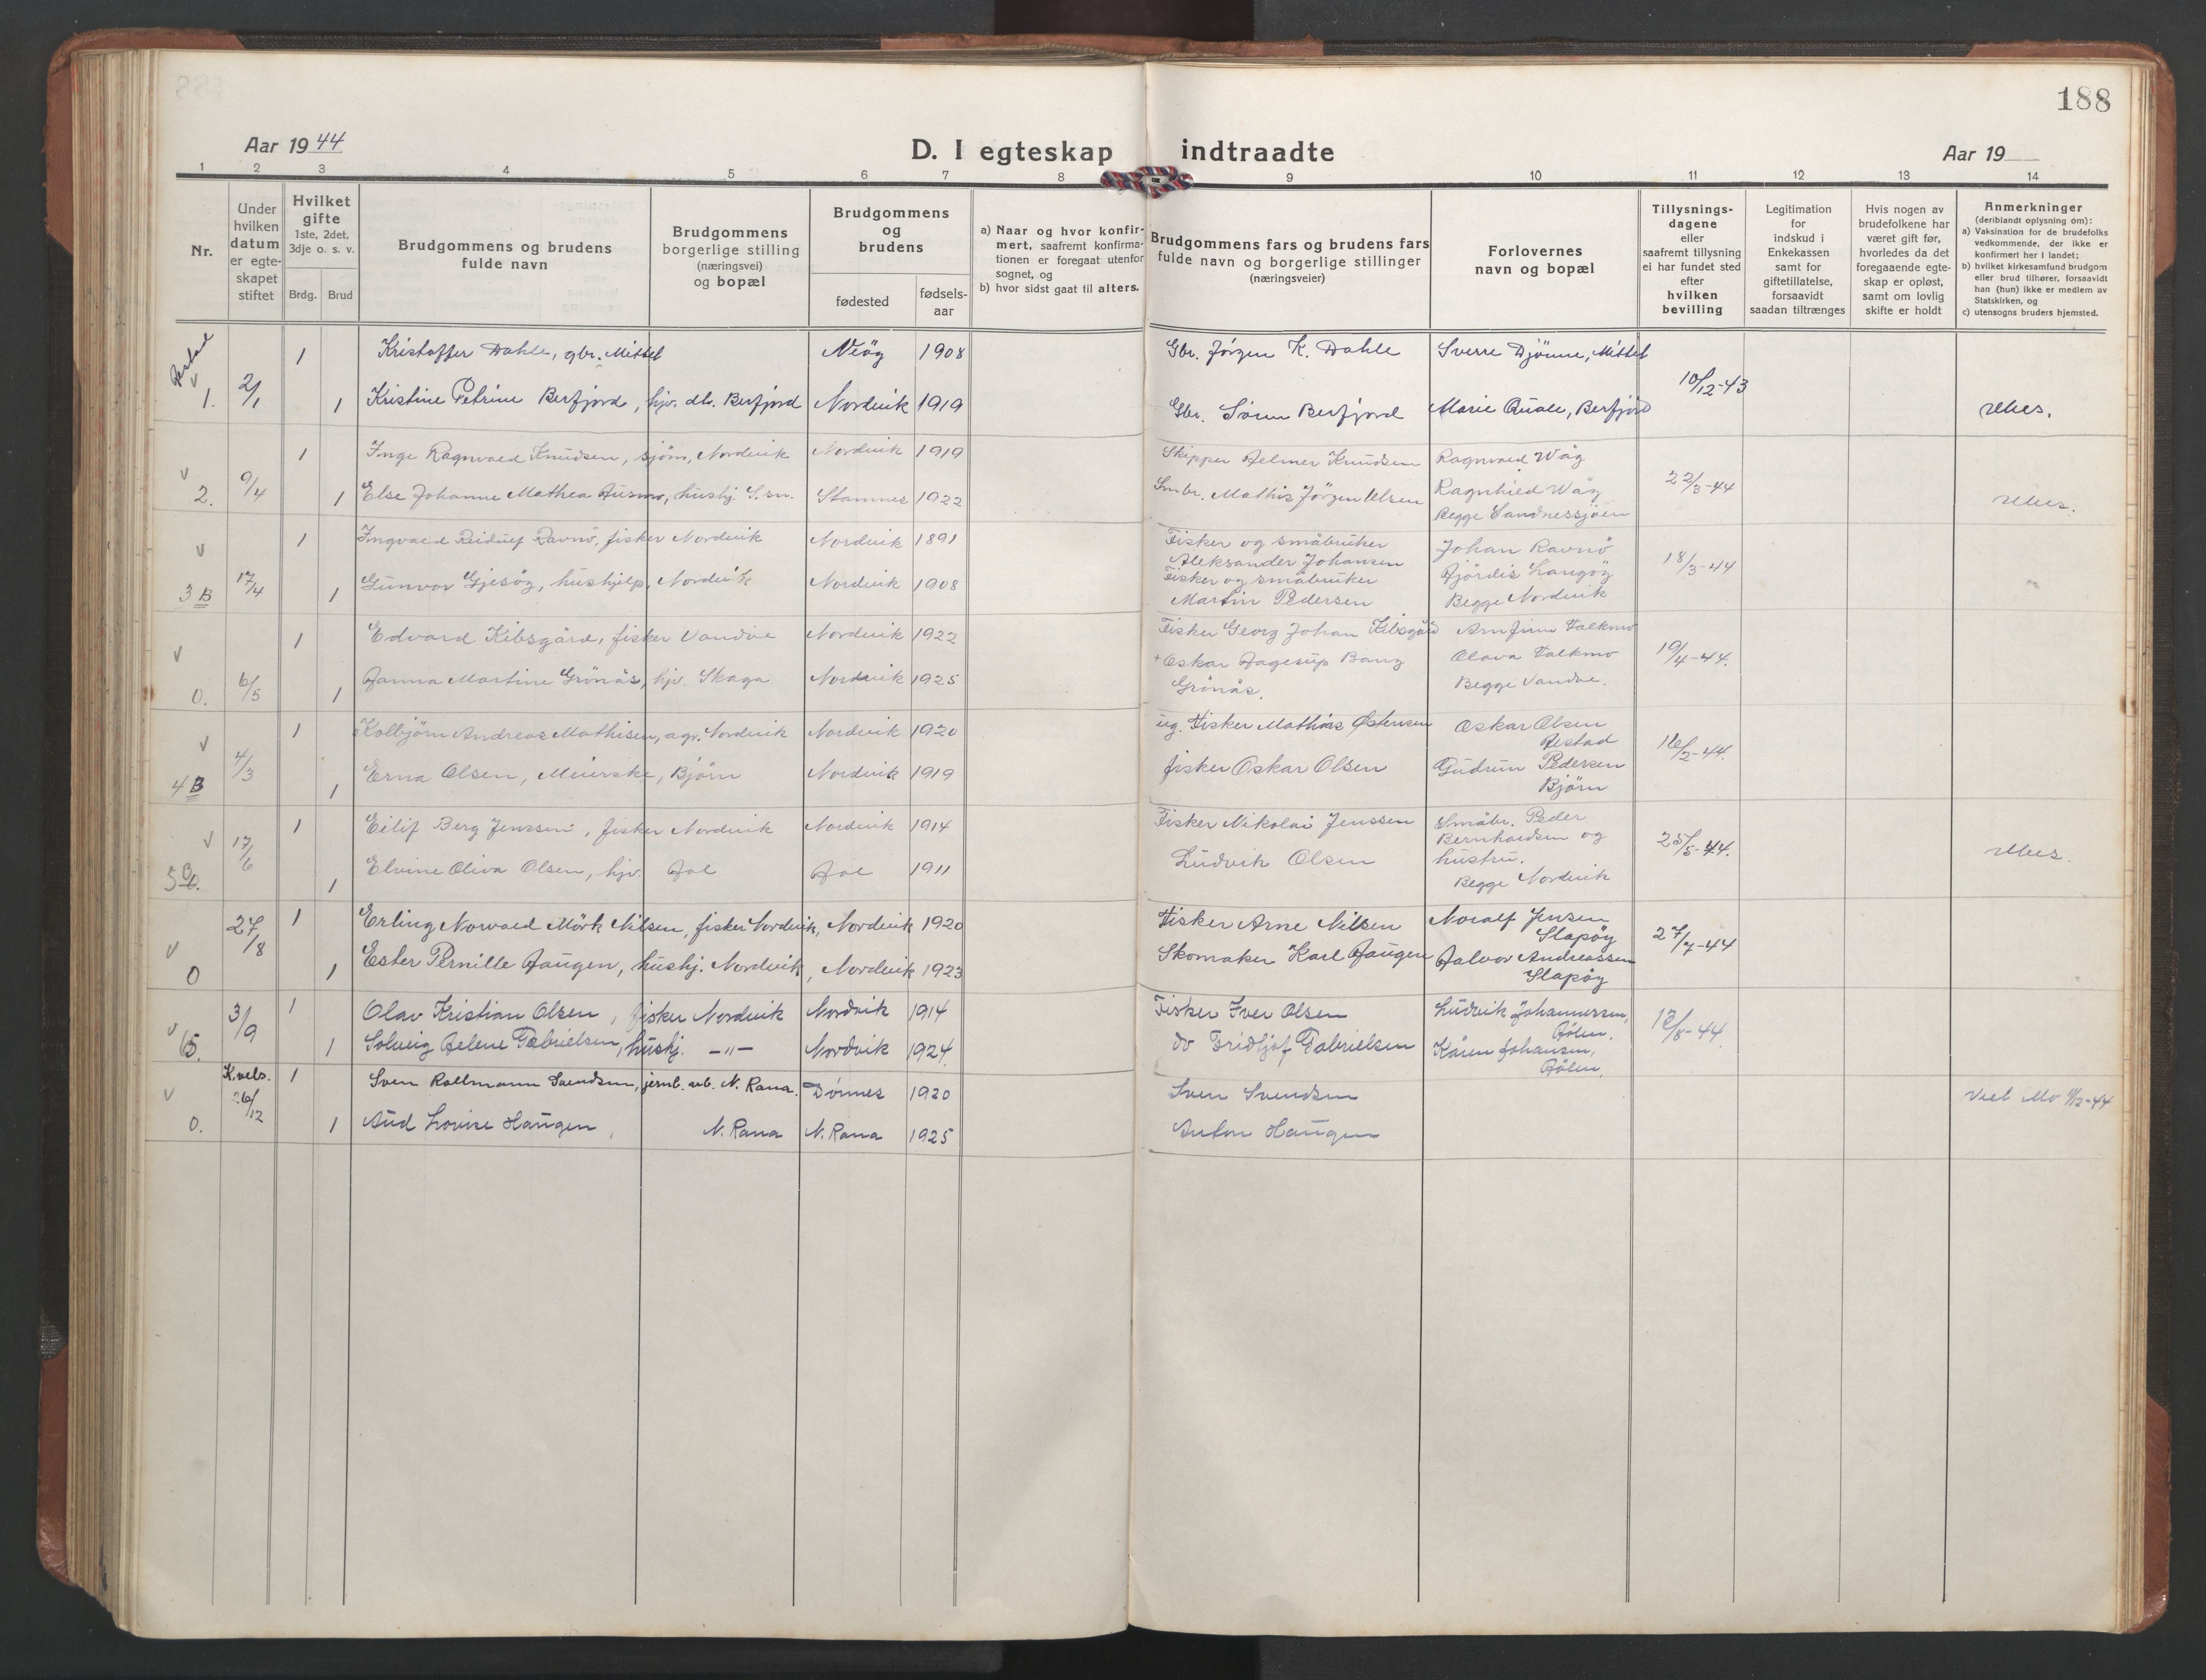 188
Aar 1944
D. I egteskap indtraadte
Aar 19
1 2 3 4 5 6 7 8 9 10 11 12 13 14
Nr.
Under
hvilken
datum
er egte-
skapet
stiftet
Hvilket
gifte
1ste, 2det,
3dje o. s. v.
Brdg. Brud
Brudgommens og brudens
fulde navn
Brudgommens
borgerlige stilling
(næringsvei)
og bopæl
Brudgommens
og
brudens
fødested
fødsels-
aar
a) Naar og hvor konfir-
mert, saafremt konfirma-
tionen er foregaat utenfor
sognet, og
b) hvor sidst gaat til alters.
Brudgommens fars og brudens fars
fulde navn og borgerlige stillinger
(næringsveier)
Forlovernes
navn og bopæl
Tillysnings-
dagene
eller
saafremt tillysning
ei har fundet sted
efter
hvilken
bevilling
Legitimation
for
indskud i
Enkekassen
samt for
giftetillatelse,
forsaavidt
saadan tiltrænges
Hvis nogen av
brudefolkene har
været gift før,
hvorledes da det
foregaaende egte-
skap er opløst,
samt om lovlig
skifte er holdt
Anmerkninger
(deriblandt oplysning om):
a) Vaksination for de brudefolks
vedkommende, der ikke er
konfirmert her i landet;
b) hvilket kirkesamfund brudgom
eller brud tilhører, forsaavidt
han (hun) ikke er medlem av
Statskirken, og
c) utensogns bruders hjemsted.
v 1 Kristoffer Dahle, gbr. Mittet Neög 1908 Gbr. Jörgen K. Dahle Sverre Djönne, Mittet
1. 2/1 1 Kristine Petrine Berfjord, hjv. dtr. Berfjord Nordvik 1919 Gbr. Sören Berfjord Marie Quale, Berfjord 10/12-43
v 1 Inge Ragnvald Knudsen, sjöm, Nordvik Nordvik 1919 Skipper Helmer Knudsen Ragnvald Våg
2. 9/4 1 Else Johanne Mathea Husmo, hushj. S.sn. Stamnes 1922 Smbr. Mathis Jörgen Ulsen Ragnhild Våg 22/3-44
Begge Sandnessjöen
v 1 Ingvald Reidulf Ravnö, fisker Nordvik Nordvik 1891 Fisker og småbruker Johan Ravnö
Aleksander Johansen
3 B 17/4 1 Gunvor Gjesög, hushjelp, Nordvik Nordvik 1908 Fisker og småbruker Hjördis Langög 18/3-44
Martin Pedersen Begge Nordvik
v 1 Edvard Kibsgård, fisker Vandve Nordvik 1922 Fisker Georg Johan Kibsgård Arnfinn Falkmo
0. 6/5 1 Hanna Martine Grönås, hjv. Skaga Nordvik 1925 + Oskar Hagerup Bang Olava Falkmo 19/4-44.
Grönås. Begge Vandve.
v 1 Kolbjörn Andreas Mathisen, agr. Nordvik Nordvik 1920 ug. Fisker Mathias Østensen Oskar Olsen
Hestad
4 B 4/3 1 Erna Olsen, Meierske, Björn Nordvik 1919 fisker Oskar Olsen Gudrun Pedersen 16/2-44.
Björn
v 1 Eilif Berg Jenssen, fisker Nordvik Nordvik 1914 Fisker Nikolai Jenssen Småbr. Peder
Bernhardsen og
5 17/6 1 Elvine Oliva Olsen, hjv. Hol Hol 1911 Ludvik Olsen hustru. 25/5-44.
Begge Nordvik
v 27/8 1 Erling Norvald Mörk Nilsen, fisker Nordvik, Nordvik 1920 Fisker Arne Nilsen Noralf Jensen
Slapög
0 1 Ester Pernille Haugen, hushj. Nordvik, Nordvik 1923 Skomaker Karl Haugen Halvor Andreassen 27/7-44
Slapög
v 3/9 1 Olav Kristian Olsen, fisker Nordvik Nordvik 1914 Fisker Iver Olsen Ludvik Johannessen,
Hölen.
6. 1 Solveig Helene Gabrielsen, hushj. -"- Nordvik 1924 do Fridtjof Gabrielsen Kåren Johansen, 12/8-44
Hölen.
v K.vels. 1 Sven Rollmann Svendsen, jernb. arb. N. Rana. Dönnes 1920 Sven Svendsen Viet Mo 11/12-44
0. 26/12 1 Aud Lovise Haugen, N. Rana N. Rana 1925 Anton Haugen